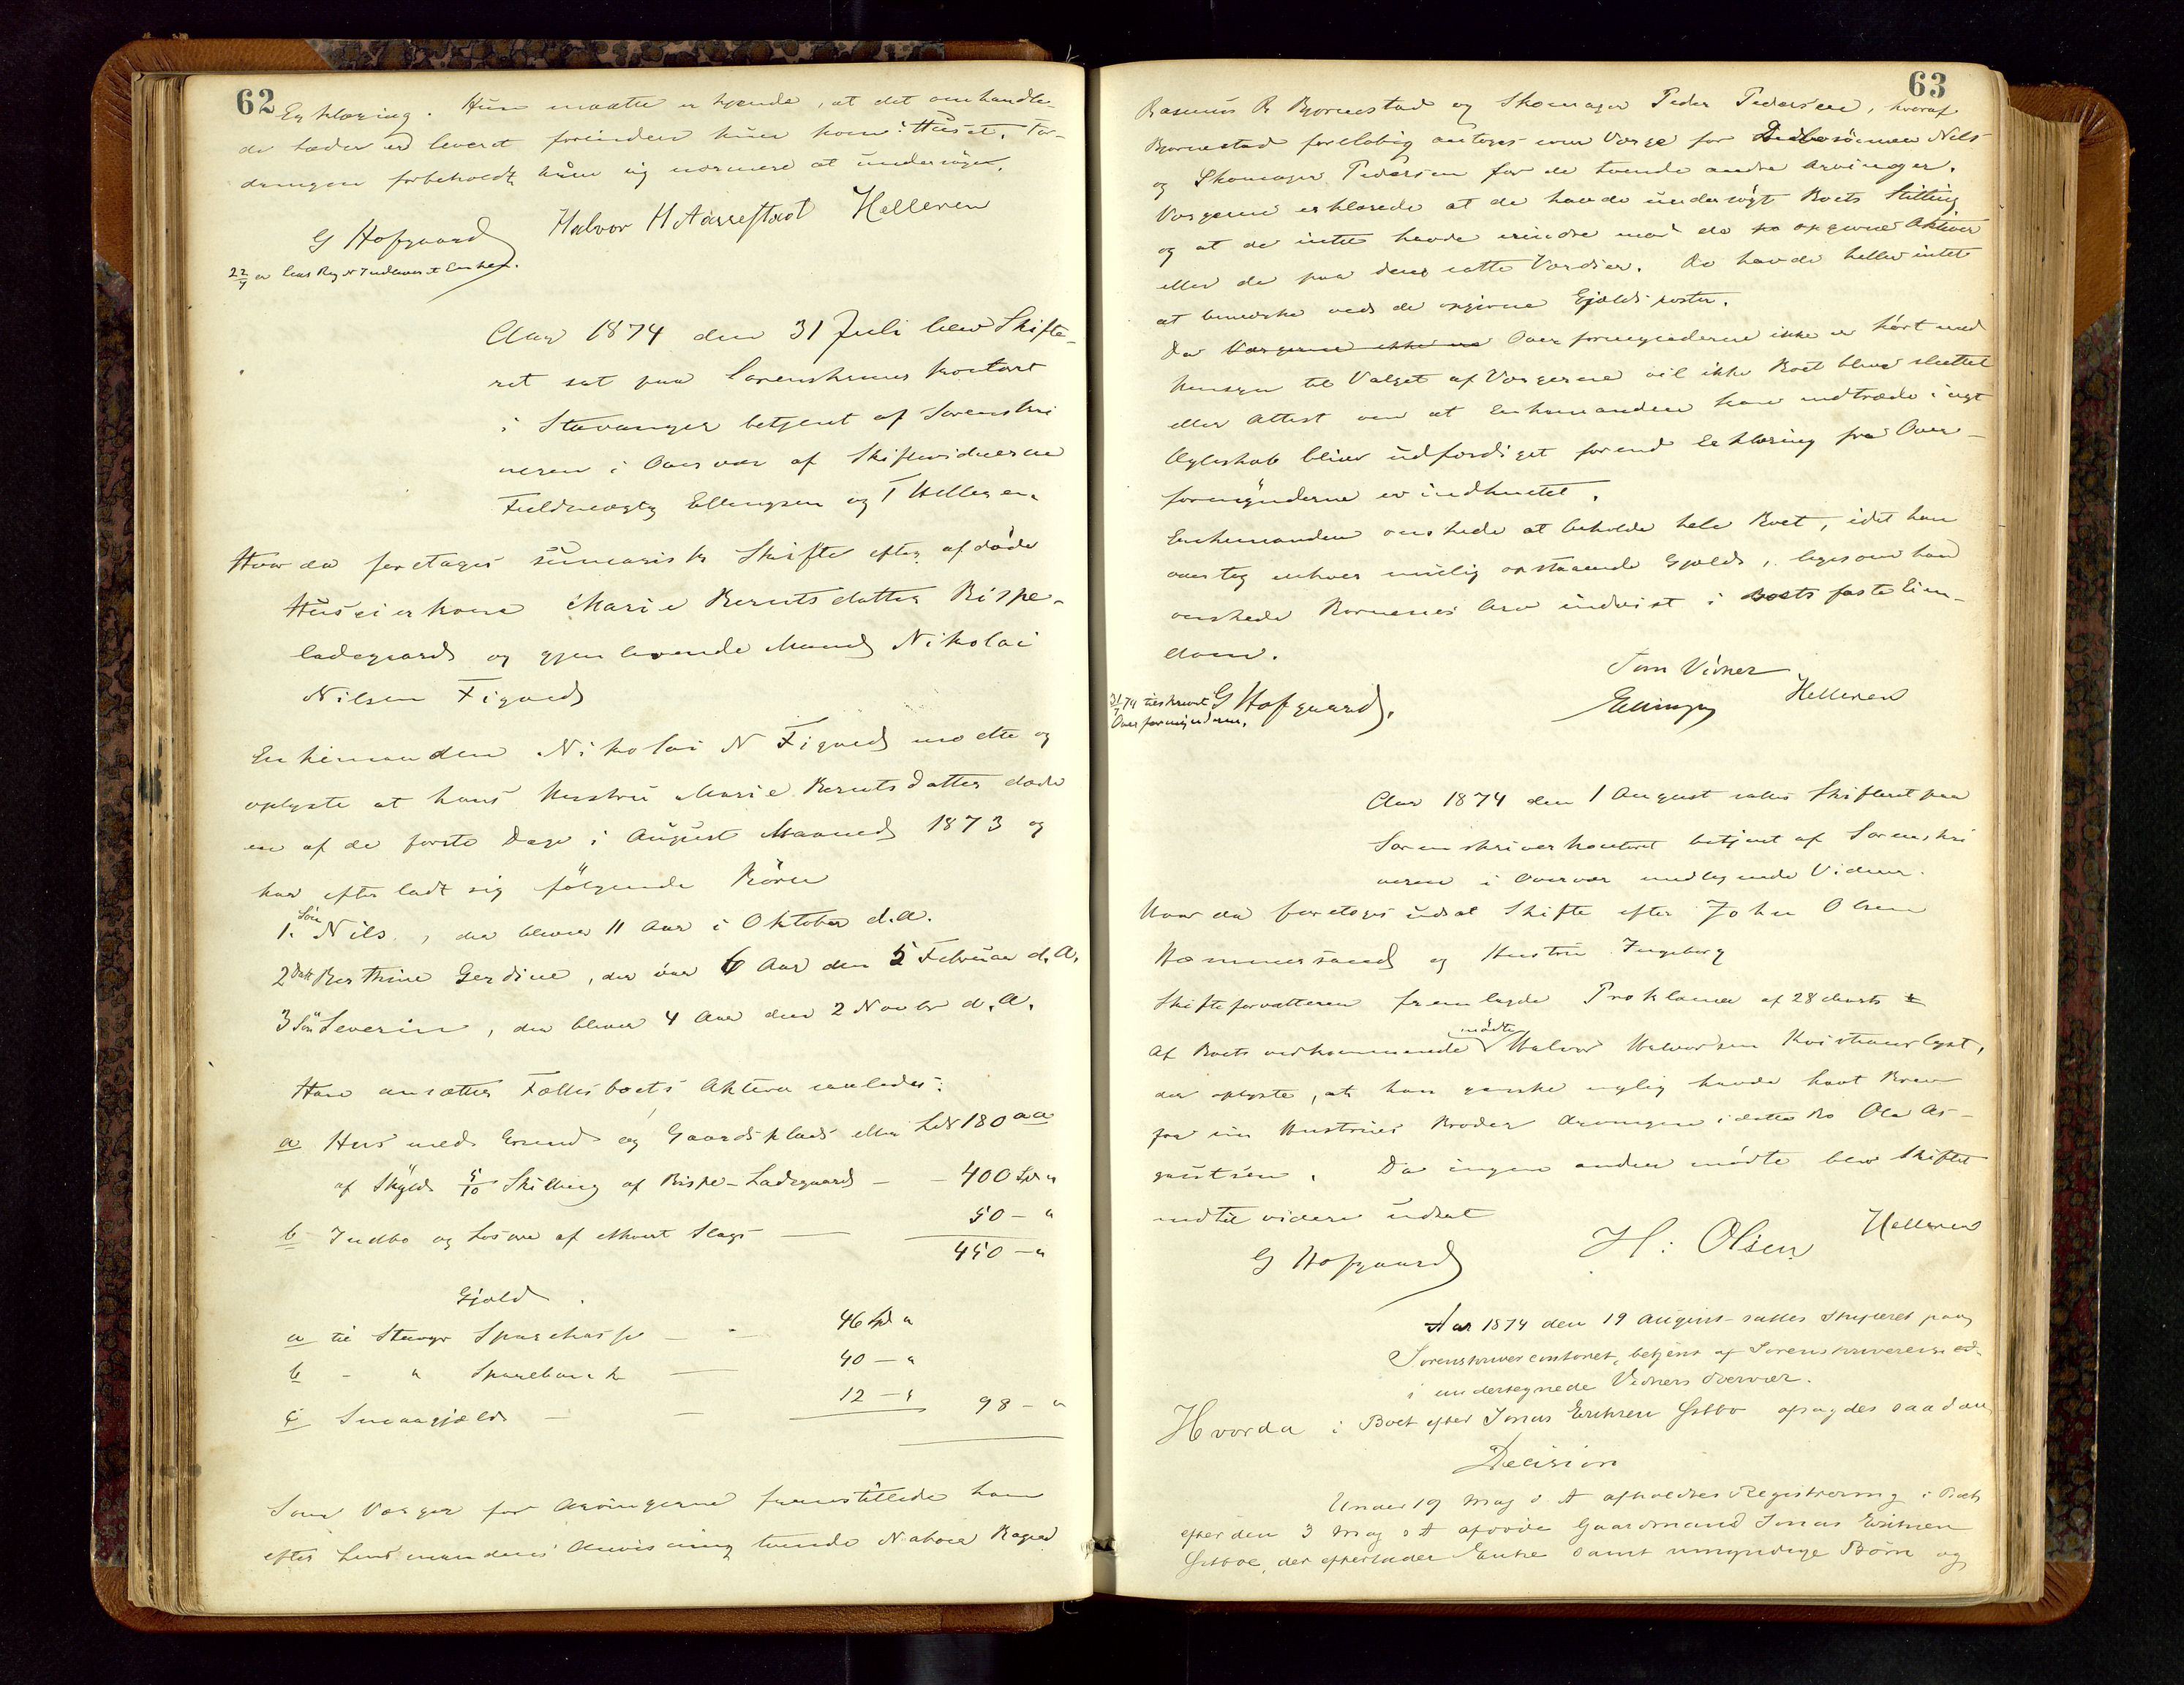 62
Erklæring. Hun maatte erkjende, at det omhandle-
de læder er leveret forinden hun kom i Huset. For-
dringen forbeholdt hun sig nærmere at undersöge.
G Hofgaard Halvor H Aarrestad Helleren
Aar 1874 den 31 Juli blev Skifte-
ret sat paa Sorenskriverkontoret
i Stavanger betjent af Sorenskri
veren i Overvær af Skiftevidnerne
Fuldmægtig Ellingsen og T Helleren.
Hvor da foretages summarisk Skifte efter afdöde
Huseierkone Marie Berntsdatter Bispe-
ladegaard og gjenlevende Mand Nikolai
Nilsen Figved
Enkemanden Nikolai N Figved mødte og
oplyste at hans Hustru Marie Berntsdatter døde
en af de første Dage i August Maaned 1873 og
har efterladt sig følgende Börn
1. Sön Nils, der bliver 11 Aar i Oktober d.A.
2 Datt Berthine Gerdine, der var 6 Aar den 5 Februar d.A.
3 Sön Severin, der bliver 4 Aar den 2 Novbr d.A.
Han ansætter Fællesboets Aktiva saaledes:
a Hus med Grund og Gaardsplads
af Skyld 5/10 Skilling af Bispe-Ladegaard - - 400 Spd "
b Indbo og Løsøre af ethvert Slags — 50 - "
450 - "
Gjæld.
a til Stavgr Sparekasse — - 46 Spd "
b - " Sparebank — 40 - "
c Smaagjæld — — 12 - " 98 - "
Som Værger for Arvingerne fremstillede han
efter Lensmandens Anvisning tvende Naboer
63
Rasmus R Bjornestad og Skomager Peder Pedersen, hvoraf
Bjornestad foreløbig antoges som Værge for sönnen Nils
og Skomager Pedersen for de tvende andre Arvinger.
Værgerne erklærede at de havde undersögt Boets Stilling
og at de intet havde erindre mod de opgivne Aktiver
eller de paa dem satte Værdier. De havde heller intet
at bemærke ved de opgivne Gjældsposter.
Da Værgerne ikke er Overformynderne ikke er hört med
Hensyn til Valget af Værgerne vil ikke Boet blive sluttet
eller Attest om at Enkemanden kan indtræde i nyt
Ægteskab bliver udfærdiget forend Erklæring fra Over-
formynderne er indhentet.
Enkemanden onskede at beholde hele Boet, idet han
overtog enhver mulig opstaaende Gjæld, ligesom han
onskede Børnenes Arv indvist i Boets faste Eien-
dom.
Som Vidner
31/7 74 tilskrevet G Hofgaard. Ellingsen Helleren
Overformynderne.
Aar 1874 den 1 August sattes Skifteret paa
Sorenskriverkontoret betjent af Sorenskri
veren i Overvær undtegnede Vidner.
Hvor da foretoges udsat Skifte efter John Olsen
Hommersand og Hustru Ingeborg
Skifteforvalteren fremlagde Proklama af 28 Marts
Af Boets vedkommende mödte Halvor Halvorsen Kristianslyst,
der oplyste, at han ganske nylig havde havt Brev
fra sin Hustrues Broder Arvingen i dette Bo Ole As-
gautsen. Da ingen anden mödte blev Skiftet
indtil videre udsat
G Hofgaard H: Olsen Helleren
Aar 1874 den 19 August sattes Skifteret paa
Sorenskrivercontoret, betjent af Sorenskriveren
i undertegnede Vidners Overvær.
Hvorda i Boet efter Jonas Eriksen Østbø afsagdes saadan
Decision
Under 19 Mag d A afholdtes Registrering i Boet
efter den 3 Mag d A afdøde Gaardmand Jonas Eriksen
Østboe, der efterlader Enke samt umyndige Börn og